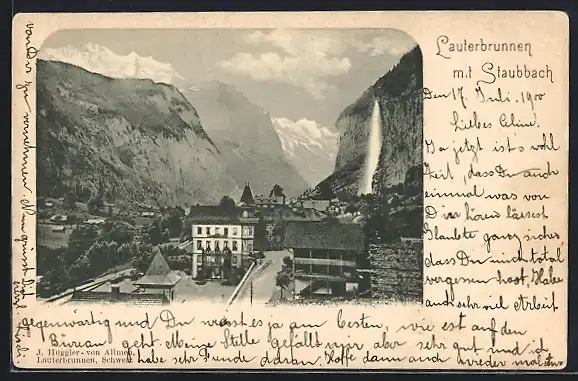 Lauterbrunnen
mit Staubbach
Den 17 Juli. 1900
Liebes Celine.
Ja jetzt ist's wohl
Zeit, dass Du auch
einmal was von
Dir hören lässest
Glaubte ganz sicher
dass Du mich total
vergessen hast. Habe
auch sehr viel Arbeit
gegenwärtig und Du weisst es ja am besten, wie es auf den
Bureau geht. Meine Stelle gefällt mir aber sehr gut und ich
habe sehr Freude daran. Hoffe dann auch wieder mal etwas
von Dir zu vernehmen
J. Huggler - von Allmen,
Lauterbrunnen, Schweiz